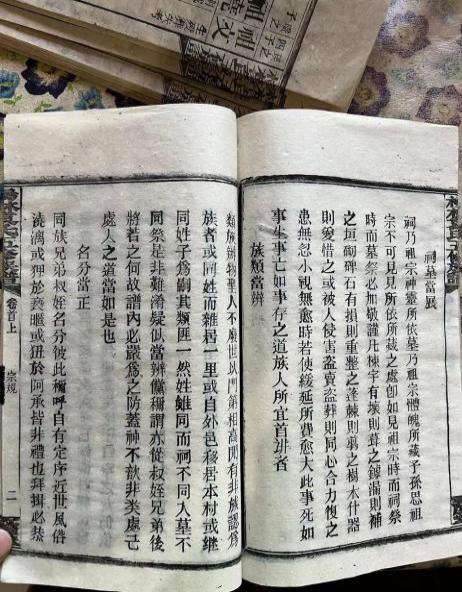 祠墓當展
祠乃祖宗神靈所依墓乃祖宗體魄所藏子孫思祖
宗不可見見所依所藏之處卽如見祖宗時而祠祭
時而墓祭必加敬謹凡棟宇有壞則葺之罅漏則補
之垣砌碑石有損則重整之蓬棘則剪之樹木什器
則愛惜之或被人侵害盜賣盜葬則同心合力復之
患無忽小視無愈時若使緩延所費愈大此事死如
事生事亡如事存之道族人所宜首講者
族類當辨
類族辦物聖人不廢世以門第相高間有非族認爲
族者或同姓而雜居一里或自外邑移居本村或繼
同姓子爲嗣其類匪一然姓雖同而祠不同人墓不
同祭是非難淆疑似當辨儻稱謂亦從叔姪兄弟後
將若之何故譜內必嚴爲之防蓋神不歆非类處己
處人之道當如是也
名分當正
同族兄弟叔姪名分彼此稱呼自有定序近世風俗
澆漓或狎於褻暱或丑於阿承皆非禮也拜揖必恭
卷首上
宗規
二